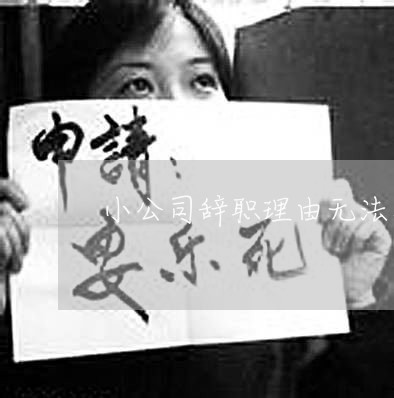 申請：
小公司辞职理由无法
安乐死